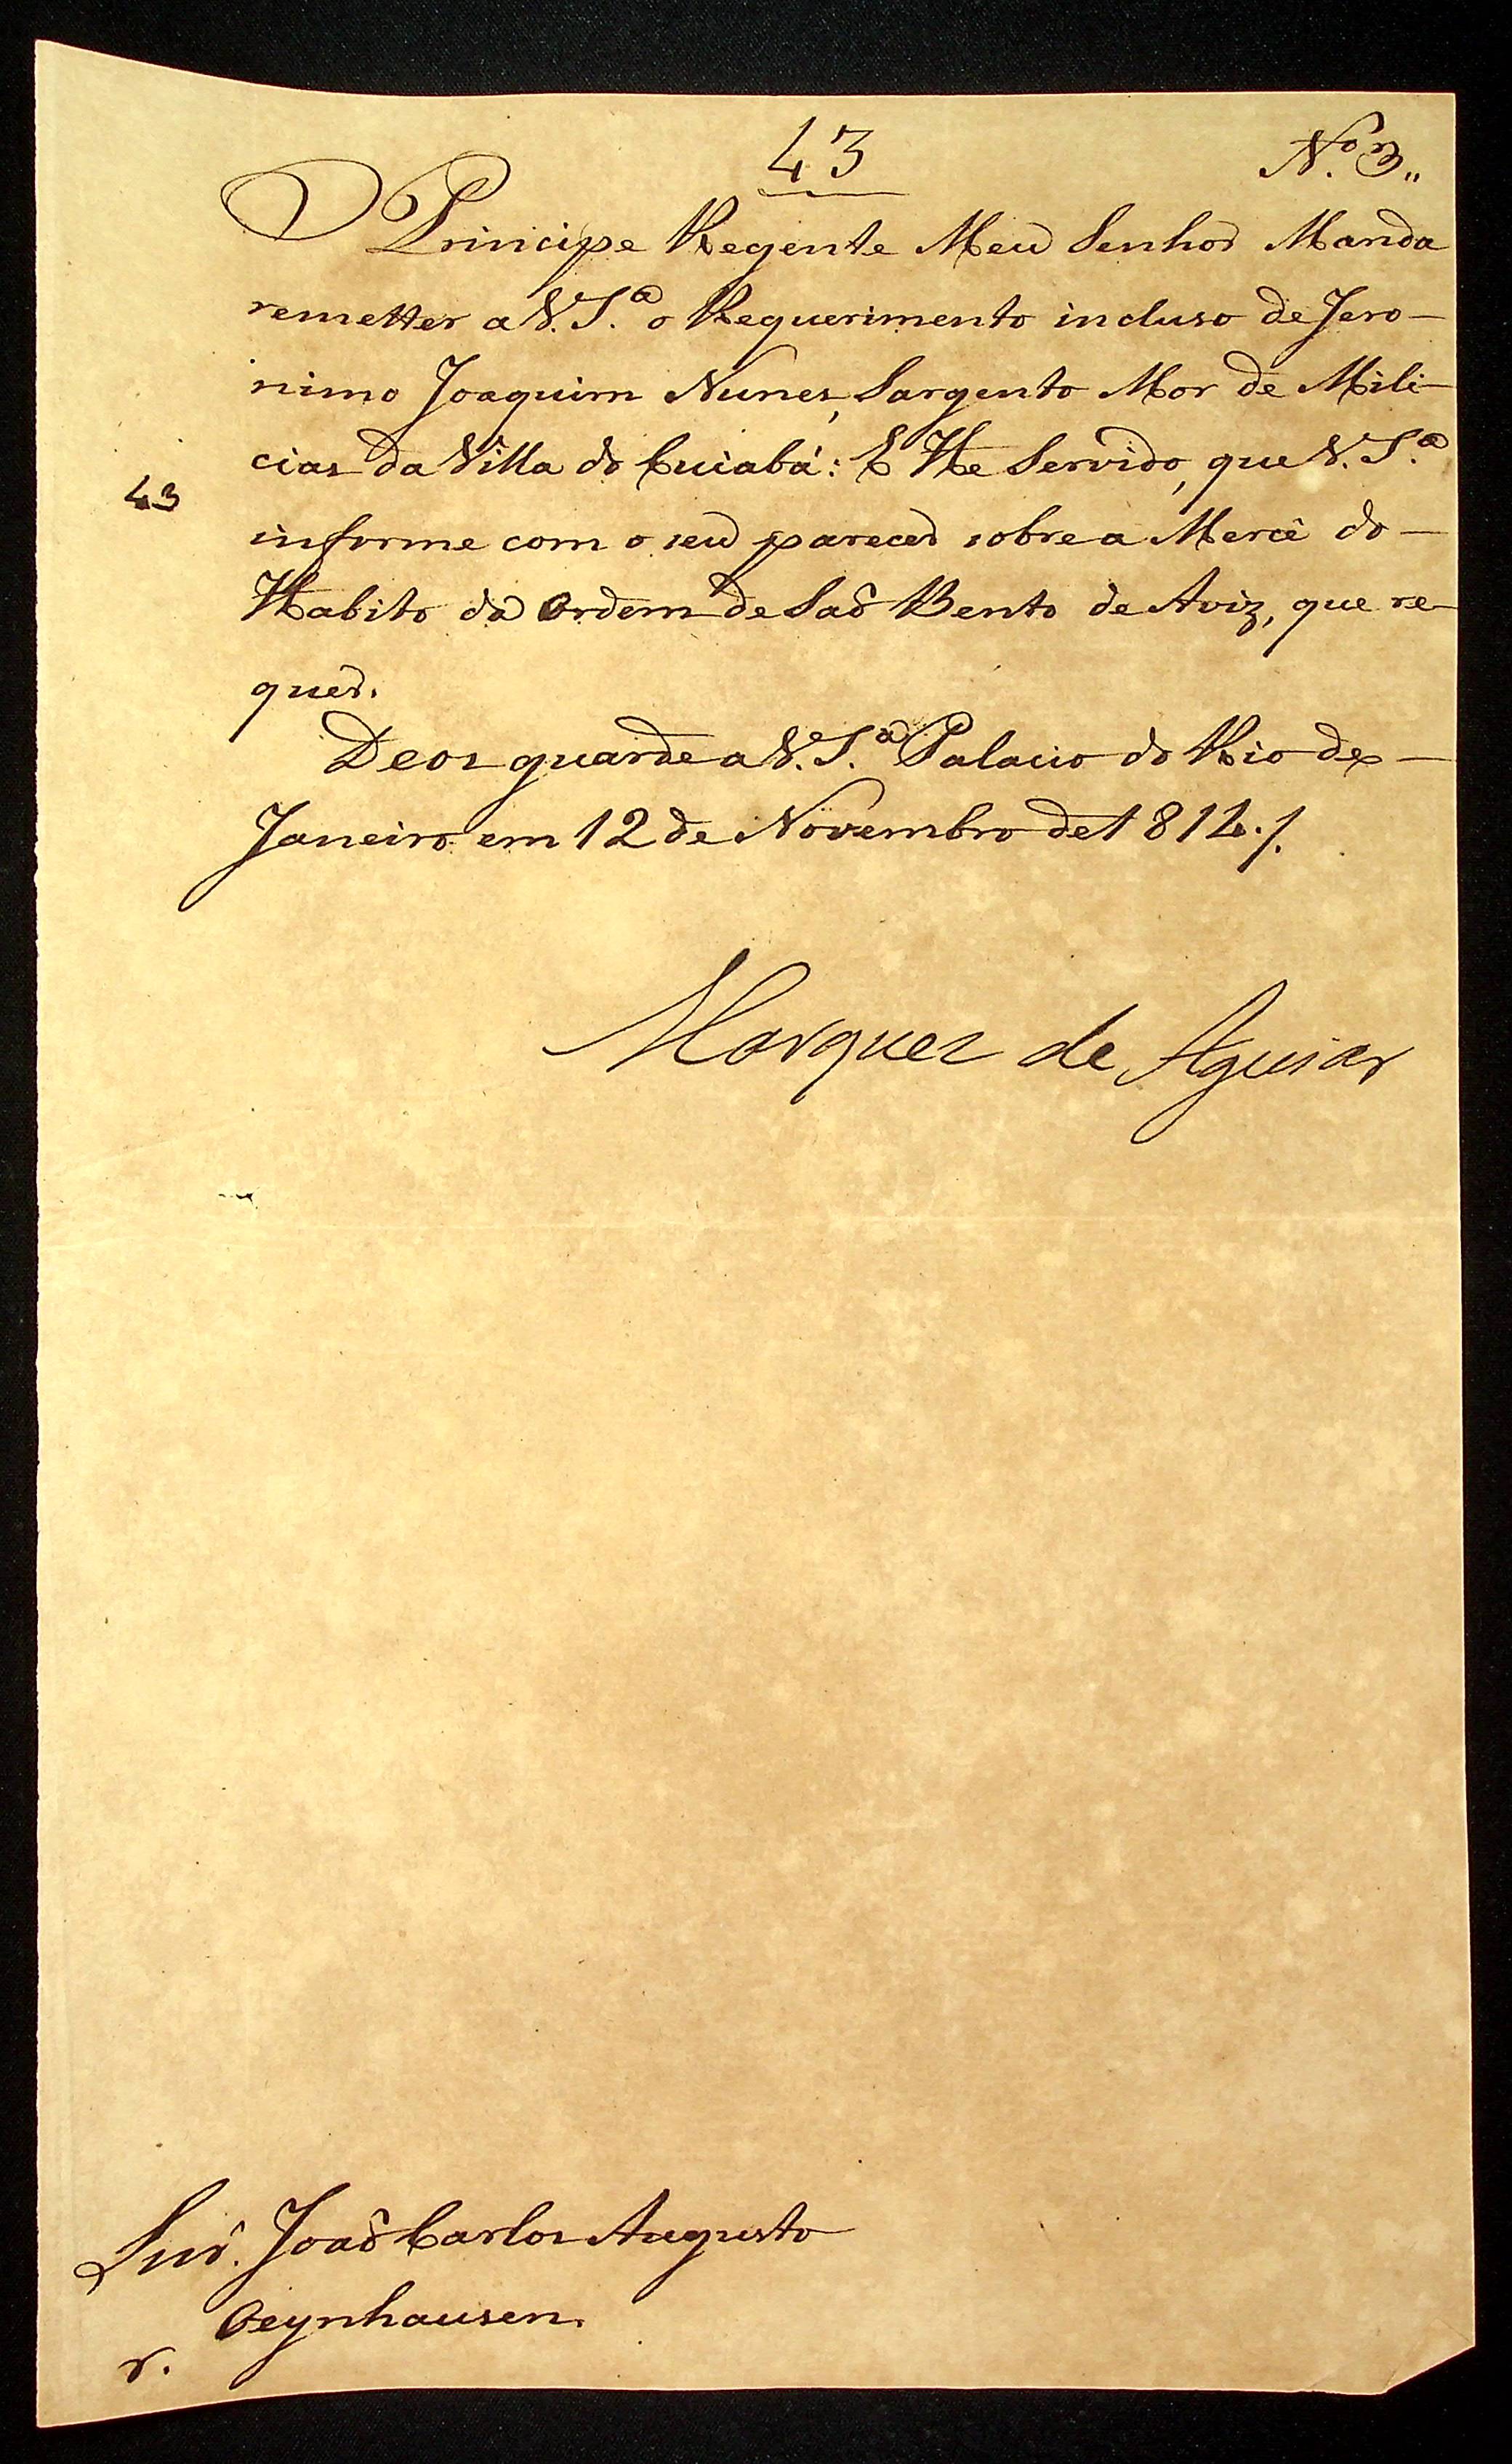 43
N.º 3,,
O Principe Regente Meu Senhor Manda
remetter a V. S.ª o Requerimento incluso de Jero-
nimo Joaquim Nunes, Sargento Mor de Mili-
cias da Villa do Cuiabá: E He Servido, que V. S.ª
43
informe com o seu parecer sobre a Mercê do
Habito da Ordem de Saõ Bento de Aviz, que re-
quer.
Deos guarde a V. S.ª Palacio do Rio de
Janeiro em 12 de Novembro de 1814./.
Marquez de Aguiar
Snr. Joaõ Carlos Augusto
Oeynhausen.
r.